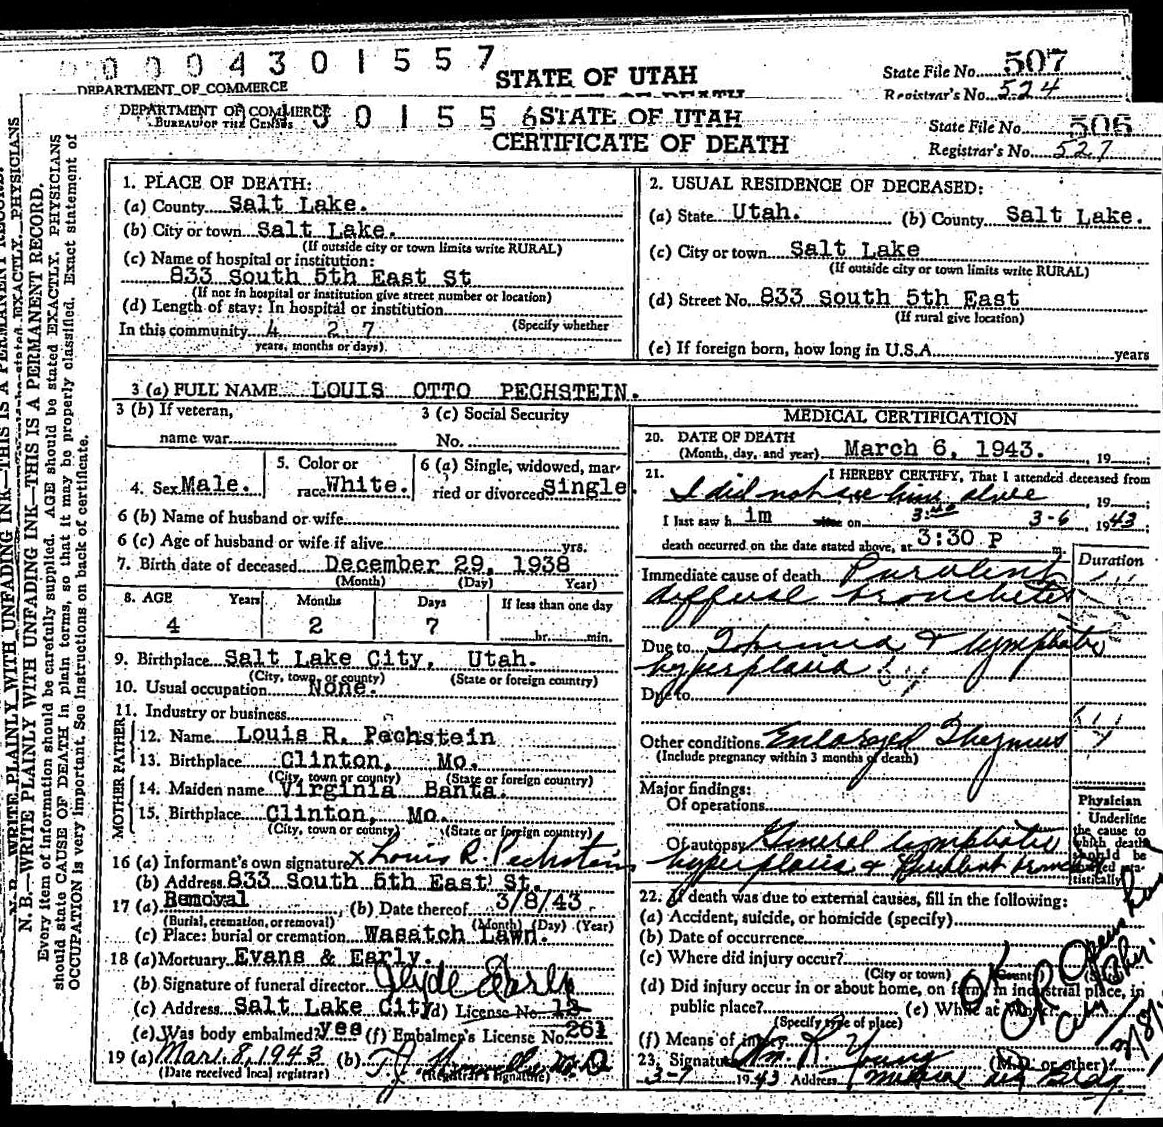 0004301557
STATE OF UTAH
State File No. 507
DEPARTMENT OF COMMERCE
Registrar's No. 524
DEPARTMENT OF COMMERCE
BUREAU OF THE CENSUS
301556
STATE OF UTAH
State File No. 506
CERTIFICATE OF DEATH
Registrar's No. 527
N. B.—WRITE PLAINLY WITH UNFADING INK—THIS IS A PERMANENT RECORD.
Every item of information should be carefully supplied. AGE should be stated EXACTLY. PHYSICIANS
should state CAUSE OF DEATH in plain terms, so that it may be properly classified. Exact statement of
OCCUPATION is very important. See instructions on back of certificate.
1. PLACE OF DEATH:
(a) County Salt Lake.
(b) City or town Salt Lake.
(If outside city or town limits write RURAL)
(c) Name of hospital or institution:
833 South 5th East St
(If not in hospital or institution give street number or location)
(d) Length of stay: In hospital or institution
(Specify whether
In this community 4 2 7
years, months or days)
2. USUAL RESIDENCE OF DECEASED:
(a) State Utah. (b) County Salt Lake.
(c) City or town Salt Lake
(If outside city or town limits write RURAL)
(d) Street No. 833 South 5th East
(If rural give location)
(e) If foreign born, how long in U.S.A. years
3 (a) FULL NAME LOUIS OTTO PECHSTEIN.
3 (b) If veteran,
name war
3 (c) Social Security
No.
4. Sex Male.
5. Color or
race White.
6 (a) Single, widowed, mar-
ried or divorced Single
6 (b) Name of husband or wife
6 (c) Age of husband or wife if alive yrs.
7. Birth date of deceased December 29, 1938
(Month) (Day) Year)
8. AGE Years Months Days If less than one day
4 2 7 hr. min.
9. Birthplace Salt Lake City, Utah.
(City, town, or county) (State or foreign country)
10. Usual occupation None.
11. Industry or business
FATHER
12. Name Louis R. Pechstein
13. Birthplace Clinton, Mo.
(City, town or county) (State or foreign country)
MOTHER
14. Maiden name Virginia Banta.
15. Birthplace Clinton, Mo.
(City, town or county) (State or foreign country)
16 (a) Informant's own signature x Louis R. Pechstein
(b) Address 833 South 5th East St.
17 (a) Removal (b) Date thereof 3/8/43
(Burial, cremation, or removal) (Month) (Day) (Year)
(c) Place: burial or cremation Wasatch Lawn.
18 (a) Mortuary Evans & Early.
(b) Signature of funeral director Clyde Early
(c) Address Salt Lake City (d) License No. 13
(e) Was body embalmed? yes (f) Embalmer's License No. 261
19 (a) Mar. 8, 1943 (b) M.D.
(Date received local registrar) (Registrar's signature)
MEDICAL CERTIFICATION
20. DATE OF DEATH
(Month, day, and year) March 6, 1943. , 19
21. I HEREBY CERTIFY, That I attended deceased from
I did not see him alive , 19
I last saw h im alive on 3:40 3-6 , 1943
death occurred on the date stated above, at 3:30 P m.
Duration
Immediate cause of death Purulent
diffuse bronchitis
Due to Thymic & lymphatic
hyperplasia
Due to
Other conditions Enlarged Thymus
(Include pregnancy within 3 months of death)
Major findings:
Of operations
Of autopsy General lymphatic
hyperplasia & Purulent
Physician
Underline
the cause to
which death
should be
charged sta-
tistically
22. If death was due to external causes, fill in the following:
(a) Accident, suicide, or homicide (specify)
(b) Date of occurrence
(c) Where did injury occur?
(City or town) (County)
(d) Did injury occur in or about home, on farm, in industrial place, in
public place? (e) While at work?
(Specify type of place)
(f) Means of injury
23. Signature Wm. R. Young (M.D. or other)
3-7 1943 Address Medical Bldg.
OK